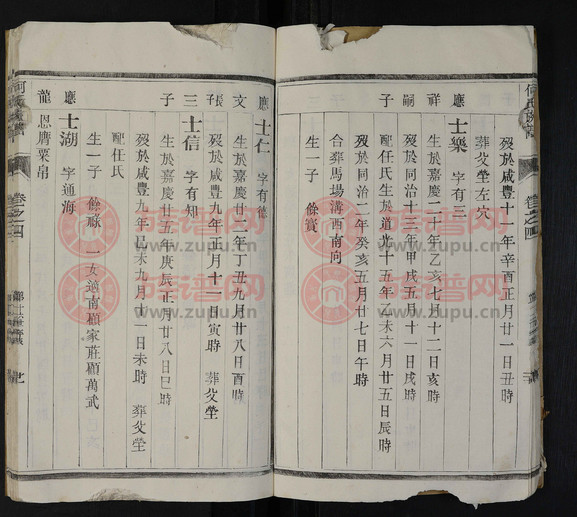 何氏族譜
卷之四
歿於咸豐十一年辛酉正月廿一日丑時
葬父塋左穴
應祥嗣子 士樂 字有三
生於嘉慶二十年乙亥七月十二日亥時
歿於同治十三年甲戌五月十一日戌時
配任氏生於道光十五年乙未六月廿五日辰時
歿於同治二年癸亥五月廿七日午時
合葬馬場溝西南向
生一子 餘賓
應文長子 士仁 字有德
生於嘉慶廿二年丁丑九月廿八日酉時
歿於咸豐九年正月十一日寅時 葬父塋
三子 士信 字有知
生於嘉慶廿五年庚辰正月廿八日巳時
歿於咸豐九年己未九月十一日未時 葬父塋
配任氏
生一子 餘 一女適南顧家莊顧萬武
應龍 士湖 字通海
恩膺粟帛
何氏族譜
卷之四
族谱网
www.zupu.cn
族谱网
www.zupu.cn
族谱网
www.zupu.cn
族谱网
www.zupu.cn